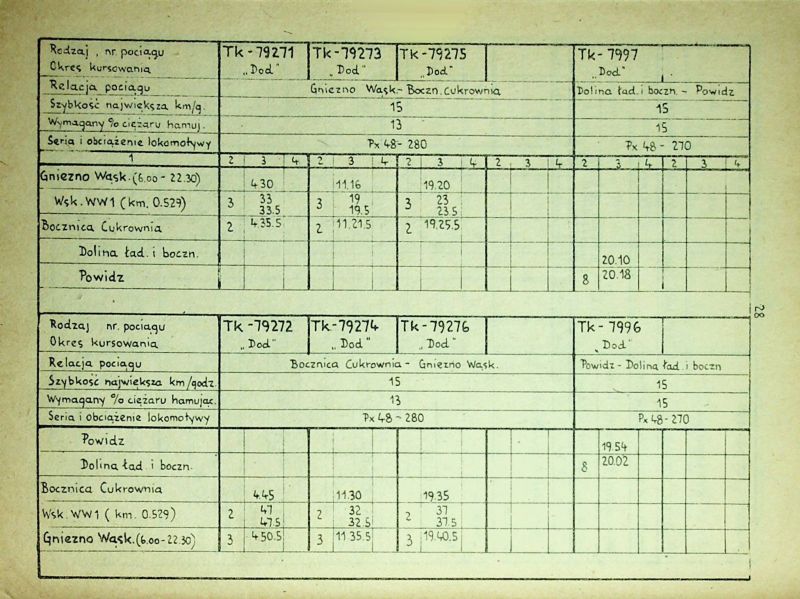 Rodzaj , nr. pociągu Tk-79271 Tk-79273 Tk-79275 Tk-7997
Okres kursowania „Dod" „Dod" „Dod" „Dod"
Relacja pociągu Gniezno Wąsk.- Boczn. Cukrownia Dolina ład. i boczn. - Powidz
Szybkość największa km/g. 15 15
Wymagany % ciężaru hamuj. 13 15
Seria i obciążenie lokomotywy Px 48-280 Px 48-270
1 2 3 4 2 3 4 2 3 4 2 3 4 2 3 4 2 3 4
Gniezno Wąsk. (6.00-22.30) 4.30 11.16 19.20
Wsk. WW1 (km. 0.529) 3 33 3 19 3 23
33.5 19.5 23.5
Bocznica Cukrownia 2 4.35.5 2 11.21.5 2 19.25.5
Dolina ład. i boczn. 20.10
Powidz 8 20.18
28
Rodzaj nr. pociągu Tk-79272 Tk-79274 Tk-79276 Tk-7996
Okres kursowania „Dod" „Dod" „Dod" „Dod"
Relacja pociągu Bocznica Cukrownia - Gniezno Wąsk. Powidz - Dolina ład. i boczn
Szybkość największa km/godz. 15 15
Wymagany % ciężaru hamując. 13 15
Seria i obciążenie lokomotywy Px 48-280 Px 48-270
Powidz 19.54
Dolina ład i boczn. 8 20.02
Bocznica Cukrownia 4.45 11.30 19.35
Wsk. WW1 ( km. 0.529) 2 47 2 32 2 37
47.5 32.5 37.5
Gniezno Wąsk. (6.00-22.30) 3 4.50.5 3 11.35.5 3 19.40.5